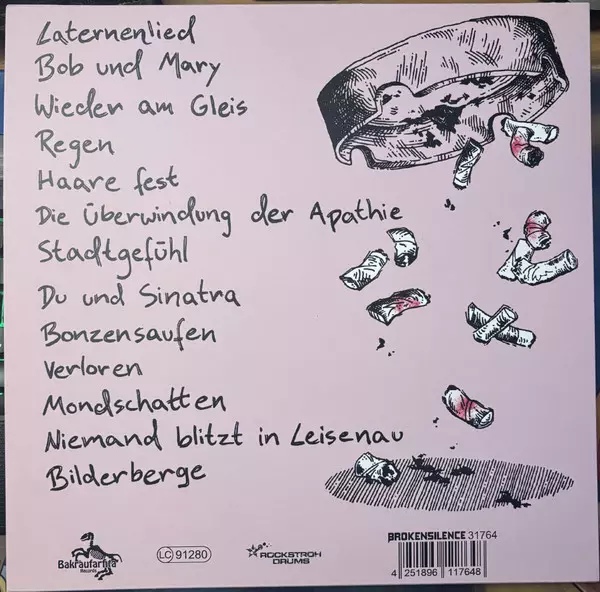 Laternenlied
Bob und Mary
Wieder am Gleis
Regen
Haare fest
Die Überwindung der Apathie
Stadtgefühl
Du und Sinatra
Bonzensaufen
Verloren
Mondschatten
Niemand blitzt in Leisenau
Bilderberge
Bakraufarfita
Records
LC 91280
ROCKSTROH
DRUMS
BROKENSILENCE 31764
4 251896 117648